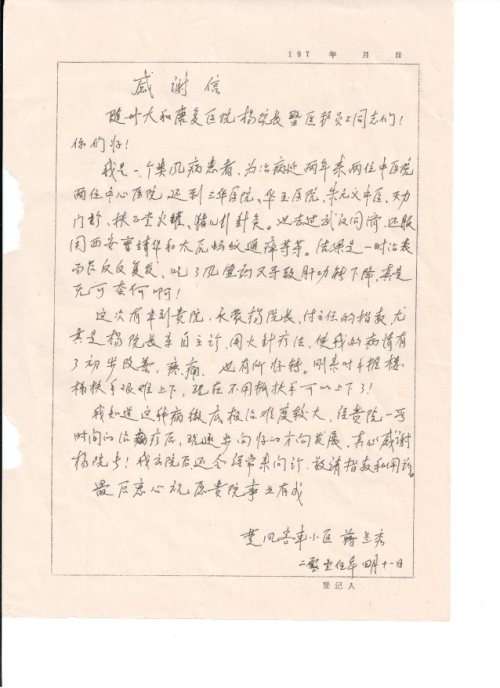 197 年 月 日
感谢信
随叶大和康复医院杨院长暨医护员工同志们!
你们好!
我是一个类风病患者,为治病近两年来两住中医院
两住中心医院还到三华医院、华玉医院、朱元义中医、
门诊、扶正堂火罐、针灸。也去过武汉同济,还服
用西安曹清华和太瓦蚂蚁通痹等等。结果是一时治表
而后反反复发,吃了风湿药又导致肝功能下降,真是
无可奈何啊!
这次有幸到贵院,承蒙杨院长、付主任的指教,尤
其是杨院长亲自主诊,用火针疗法,使我的病情有
了初步改善,疼痛 也有所好转。刚来时手推楼
梯扶手艰难上下,现在不用抓扶手可以上下了!
我知道这种病彻底根治难度较大,经贵院一
时间的治疗后,现逐步向好的方向发展,衷心感谢
杨院长!我出院后还会经常来问诊,敬请指教和用药
最后衷心祝愿贵院事业有成
楚风客车小区 蒋兰秀
二零一五年四月十一日
登记人